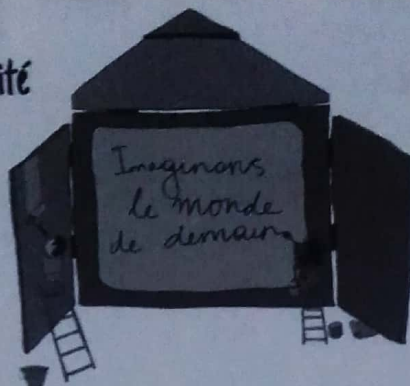 ité
Imaginons
le monde
de demain